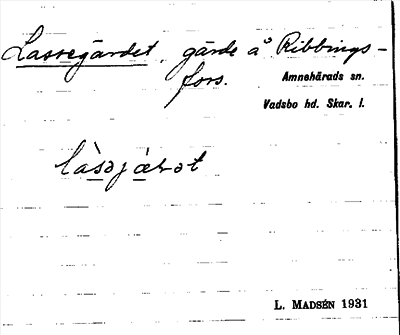 Lassegärdet, gärde å Ribbings-
fors.
Amnehärads sn.
Vadsbo hd. Skar. l.
làsəjæ̀ꞏət
L. MADSÉN 1931